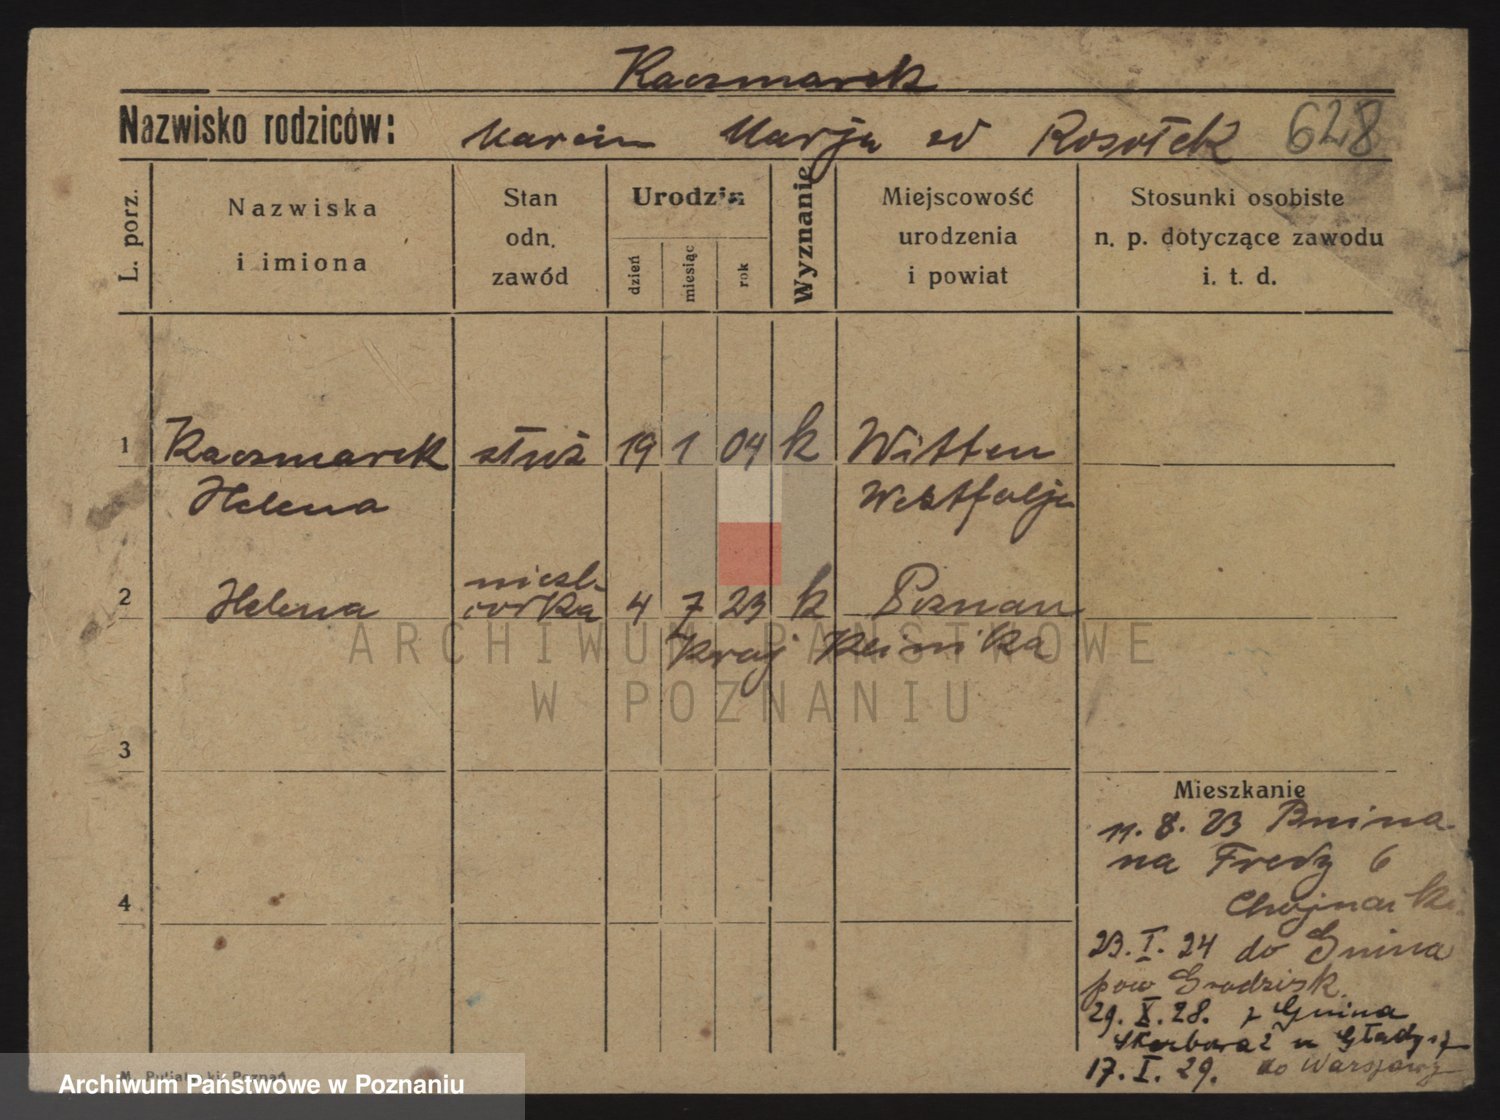 Kaczmarek
Nazwisko rodziców: Marcin Marja zd Rosołek 628
L. porz.
Nazwiska i imiona
Stan odn. zawód
Urodzin
dzień
miesiąc
rok
Wyznanie
Miejscowość urodzenia i powiat
Stosunki osobiste n. p. dotyczące zawodu i. t. d.
1 Kaczmarek służ 19 1 04 k Witten
Helena Westfalja
niesl.
2 Helena córka 4 7 23 k Poznan
Kraj Klinika
3
Mieszkanie
11. 8. 23 Bnina
na Fredy 6
4
23. I. 24 do Gnina
pow Grodzisk
29. X. 28. z Gnina
u Gładysz
17. I. 29. do Warszawy
ARCHIWUM PAŃSTWOWE
W POZNANIU
Archiwum Państwowe w Poznaniu